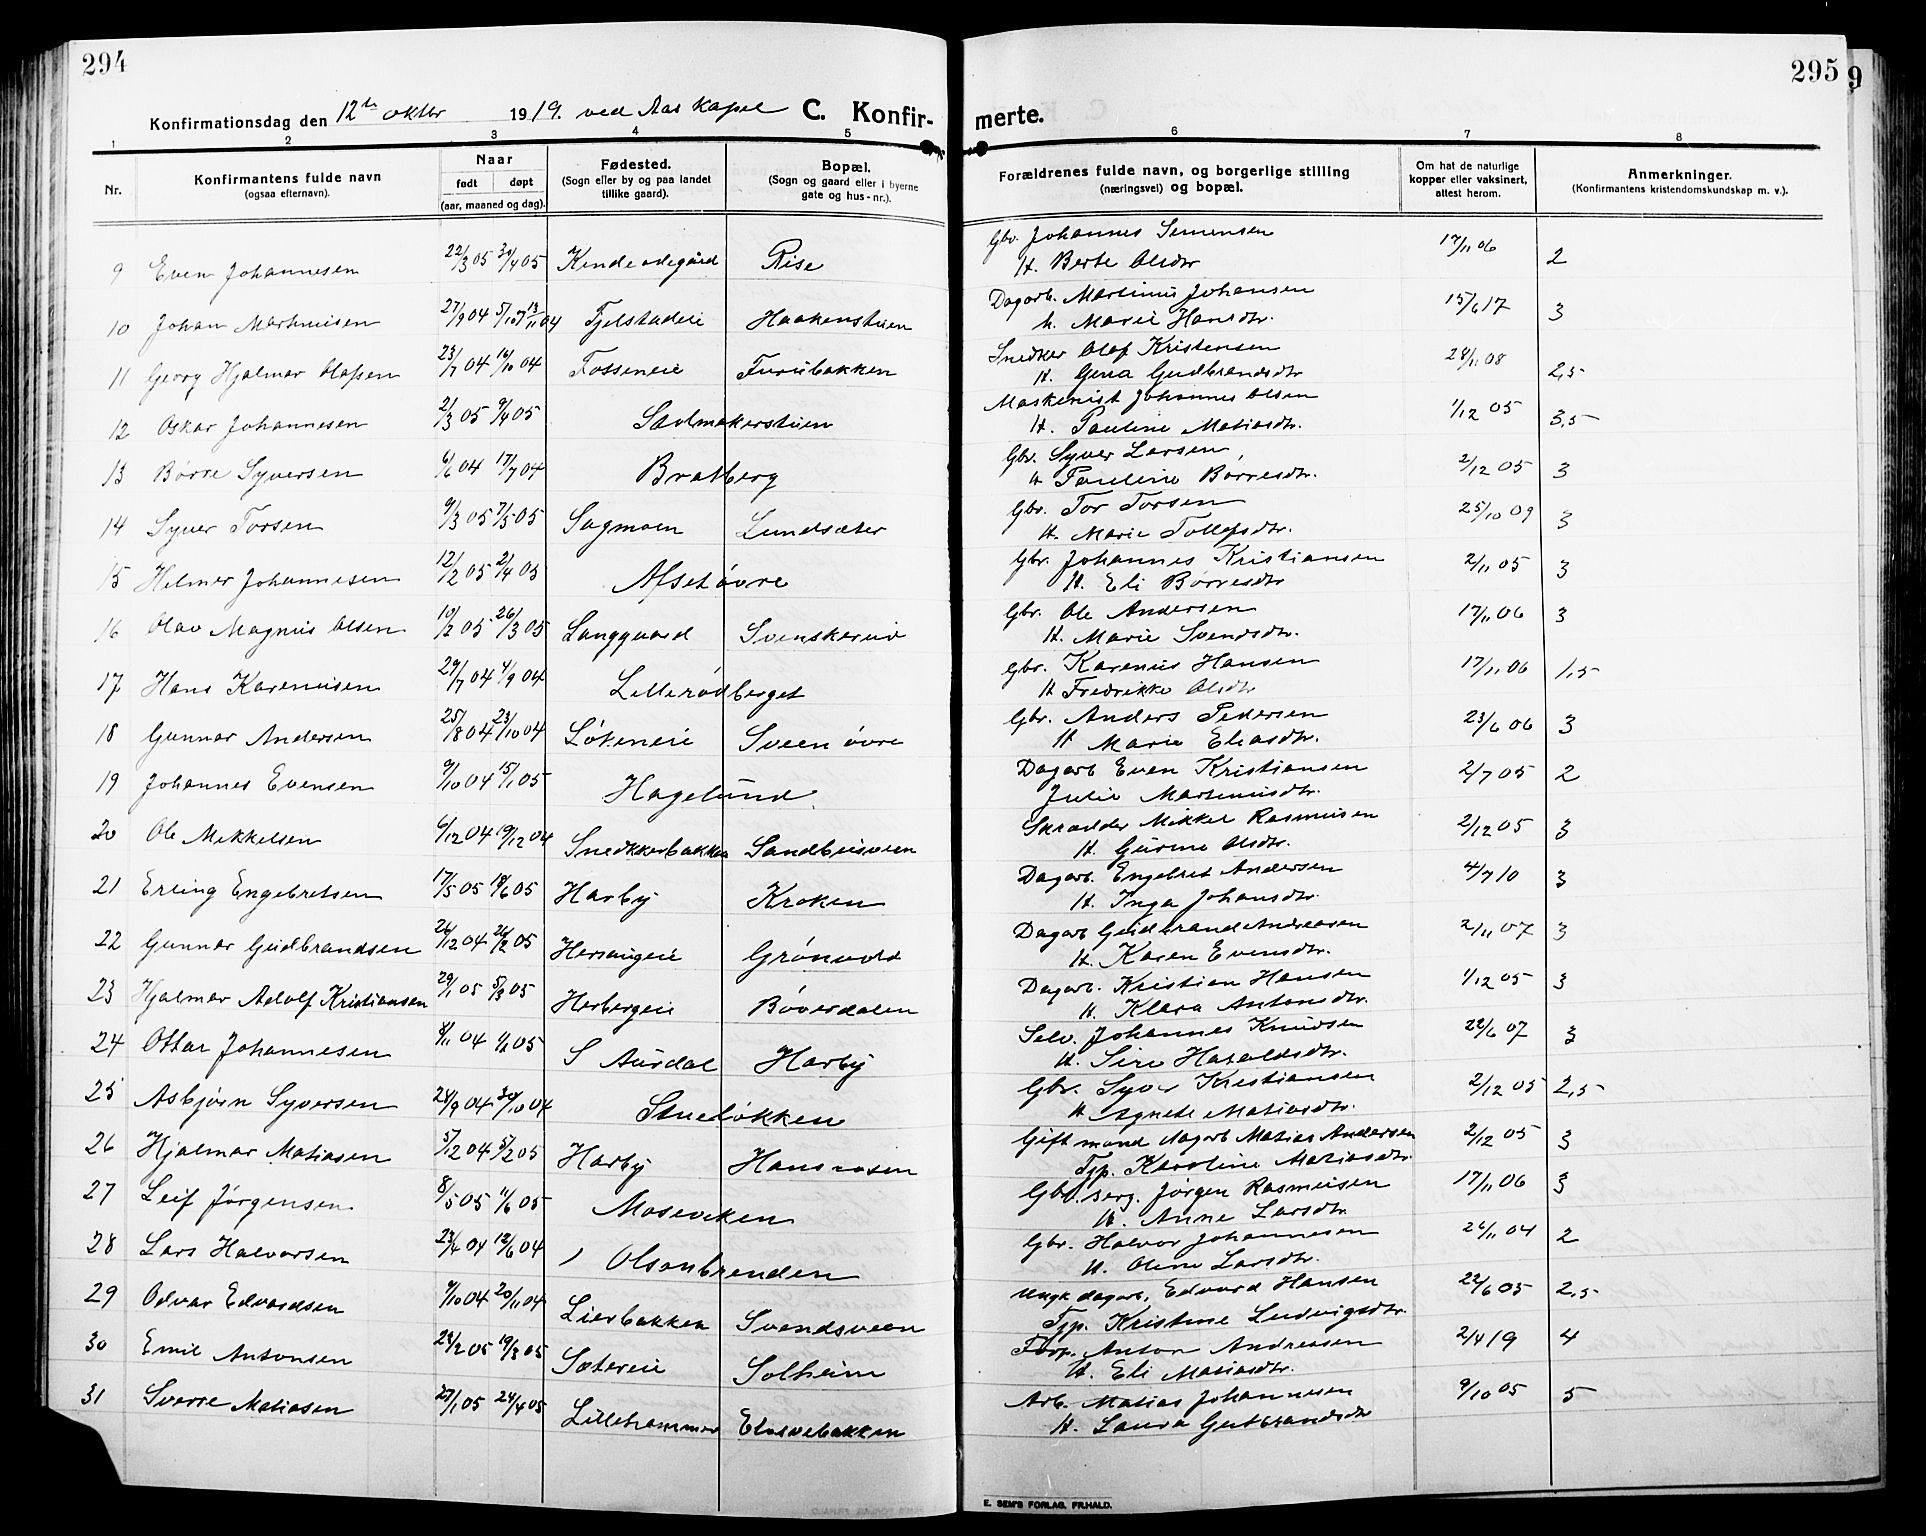 294
295
9
Konfirmationsdag den 12te oktbr 1919. ved Aas Kapel C. Konfir-
merte.
1 2 3 4 5 6 7 8
Nr.
Konfirmantens fulde navn
(ogsaa efternavn).
Naar
født døpt
(aar, maaned og dag).
Fødested.
(Sogn eller by og paa landet
tillike gaard).
Bopæl.
(Sogn og gaard eller i byerne
gate og hus-nr.).
Forældrenes fulde navn, og borgerlige stilling
(næringsvei) og bopæl.
Om hat de naturlige
kopper eller vaksinert,
attest herom.
Anmerkninger.
(Konfirmantens kristendomskundskap m. v.).
9 Even Johannesen 22/3 05 30/4 05 Kindeødegård Rise Gbr. Johannes Simensen 17/11 06 2
H. Berte Olsdtr
10 Johan Martinusen 27/9 04 13/11 04 Fjelstadeie Haakenstuen Dagarb. Martinus Johansen 15/6 17 3
h. Marie Hansdtr.
11 Georg Hjalmar Olafsen 23/7 04 16/10 04 Fosseneie Furubakken Snedker Olaf Kristensen 28/11 08 2,5
H. Gina Gudbrandsdtr
12 Oskar Johannesen 2/3 05 9/4 05 Stolmakerstuen Maskinist Johannes Olsen 1/12 05 3,5
H. Pauline Matiasdtr.
13 Børre Syversen 6/6 04 17/7 04 Bratberg Gbr. Syver Larsen 2/12 05 3
H Pauline Børresdtr.
14 Syver Torsen 9/3 05 7/5 05 Sagmoen Lundsæter Gbr. Tor Torsen 25/10 09 3
H. Marie Tollefsdtr.
15 Helmer Johannesen 12/2 05 2/4 05 Afset øvre Gbr. Johannes Kristiansen 2/11 05 3
H. Eli Børresdtr
16 Olav Magnus Olsen 10/2 05 26/3 05 Langgaard Svenskerud Gbr. Ole Andersen 17/11 06 3
H. Marie Svendsdtr.
17 Hans Kareniusen 29/7 04 4/9 04 Lillerødberget Gbr. Karenius Hansen 17/11 06 1,5
H Fredrikke Olsdtr
18 Gunnar Andersen 25/8 04 23/10 04 Løkeneie Sveen øvre Gbr. Anders Pedersen 23/6 06 3
H Marie Eliasdtr.
19 Johannes Evensen 9/10 04 15/1 05 Hagelund. Dagarb Even Kristiansen 2/7 05 2
Julie Martinusdtr.
20 Ole Mikkelsen 6/12 04 19/12 04 Snedkerbakken Sandbusveen Skrædder Mikkel Rasmusen 2/12 05 3
H. Gurine Olsdtr.
21 Erling Engebretsen 17/5 05 18/6 05 Harby Kroken Dagarb. Engebret Andersen 4/7 10 3
H. Inga Johansdtr.
22 Gunnar Gudbrandsen 26/12 04 26/2 05 Hersaugeie Grønvold Dagarb Gudbrand Andreasen 2/11 07 3
H. Karen Evensdtr.
23 Hjalmar Adolf Kristiansen 29/1 05 5/3 05 Herbergeie Bøverdalen Dagarb. Kristian Hansen 1/12 05 3
H. Klara Antonsdtr.
24 Ottar Johannesen 8/11 04 1/2 05 S Aurdal Harby Selv. Johannes Knudsen 22/6 07 3
H. Siri Haraldsdtr.
25 Asbjørn Syversen 28/9 04 30/10 04 Stueløkken Gbr. Syver Kristiansen 2/12 05 2,5
H Agnete Matiasdtr.
26 Hjalmar Matiasen 5/12 04 5/2 05 Harby Hansmoen Gift mand dagarb Matias Andersen 2/12 05 3
Tjp. Karoline Matiasdtr.
27 Leif Jørgensen 8/5 05 11/6 05 Moseviken Gbr. serg. Jørgen Rasmusen 17/11 06 3
H. Anne Larsdtr
28 Lars Halvorsen 23/4 04 12/6 04 Olsenbrenden Gbr. Halvor Johannesen 26/11 04 2
H. Oline Larsdtr.
29 Odvar Edvardsen 9/10 04 20/11 04 Lierbakken Svendsveen Ungk dagarb. Edvard Hansen 22/6 05 2,5
Tjp. Kristine Ludvigsdtr.
30 Emil Antonsen 23/2 05 19/3 05 Sætereie Solheim Forp. Anton Andreasen 2/4 19 4
H. Eli Matiasdtr.
31 Sverre Matiasen 27/1 05 24/4 05 Lillehammer Arb. Matias Johannesen 9/10 05 5
H. Laura Gutbrandsdtr
E. SEM'S FORLAG, FR.HALD.